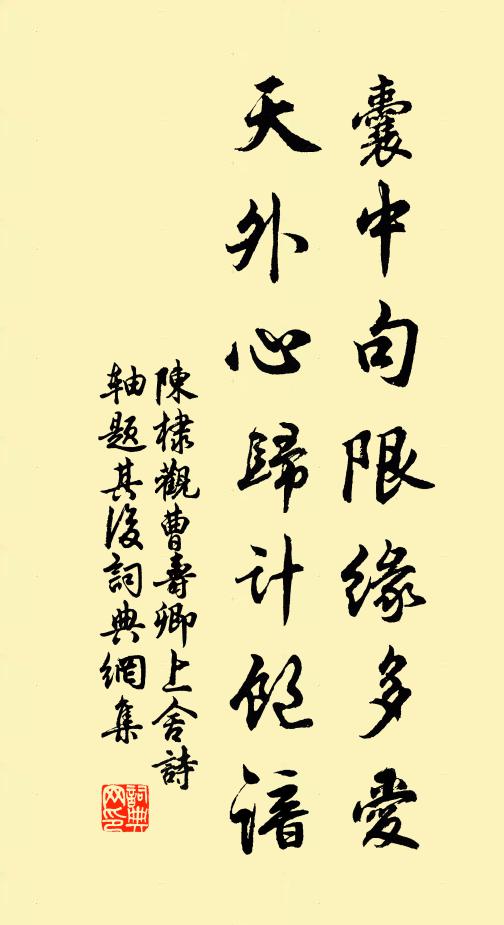 囊中句限缘多愛
天外心歸计飽谙
陳棣觀曹壽卿上舍詩
軸題其後詞典網集
詞典网印